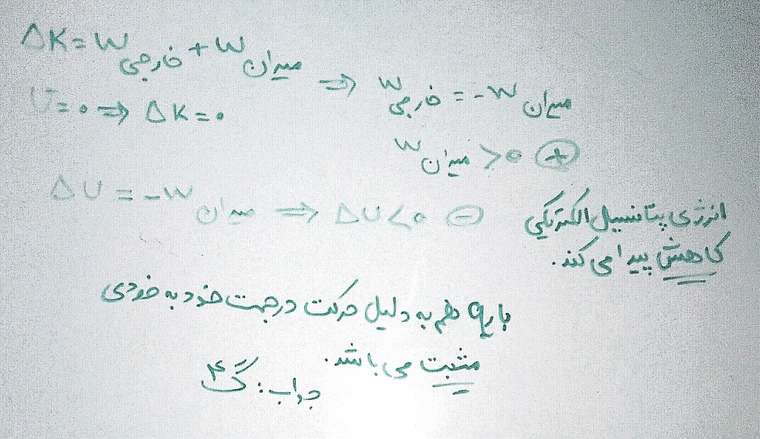 ΔK = W خارجی + W میدان ⇒ W خارجی = -W میدان
U = 0 ⇒ ΔK = 0
W میدان > 0 ⊕
ΔU = -W میدان ⇒ ΔU < 0 ⊖
انرژی پتانسیل الکتریکی
کاهش پیدا می کند.
بار q هم به دلیل حرکت در جهت خود به خودی
مثبت می باشد.
جواب: گ ۴